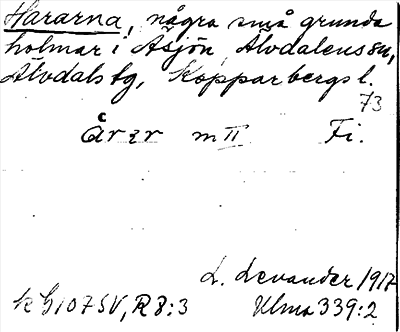 Hararna, några små grunda
holmar i Åsjön, Älvdalens sn,
Älvdals tg, Kopparbergs l.
73
m II Fi.
L. Levander 1917
R8:3 Ulma 339:2